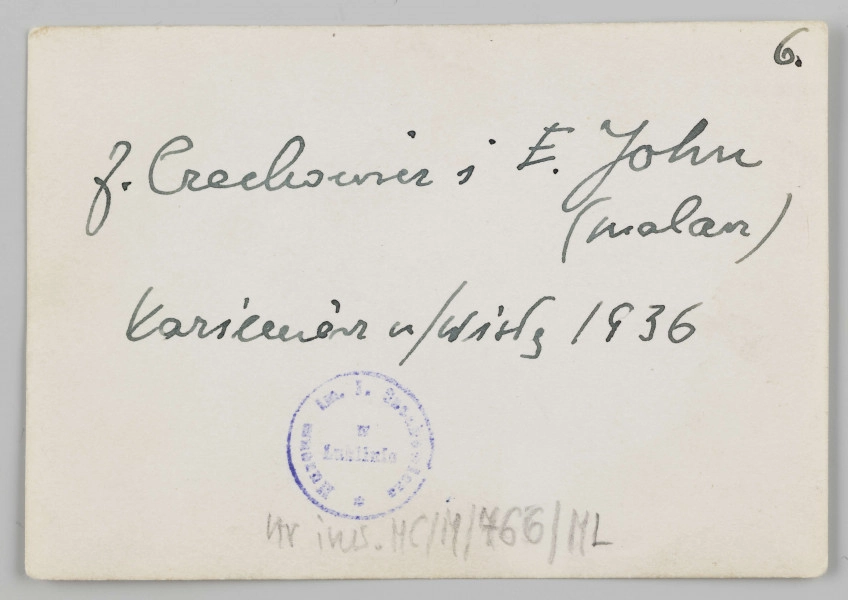 6.
J. Czechowicz i E. John
(malarz)
Kazimierz n/Wisłą 1936
Muzeum im. J. Czechowicza
w
Lublinie
Nr inw. MC/M/766/ML